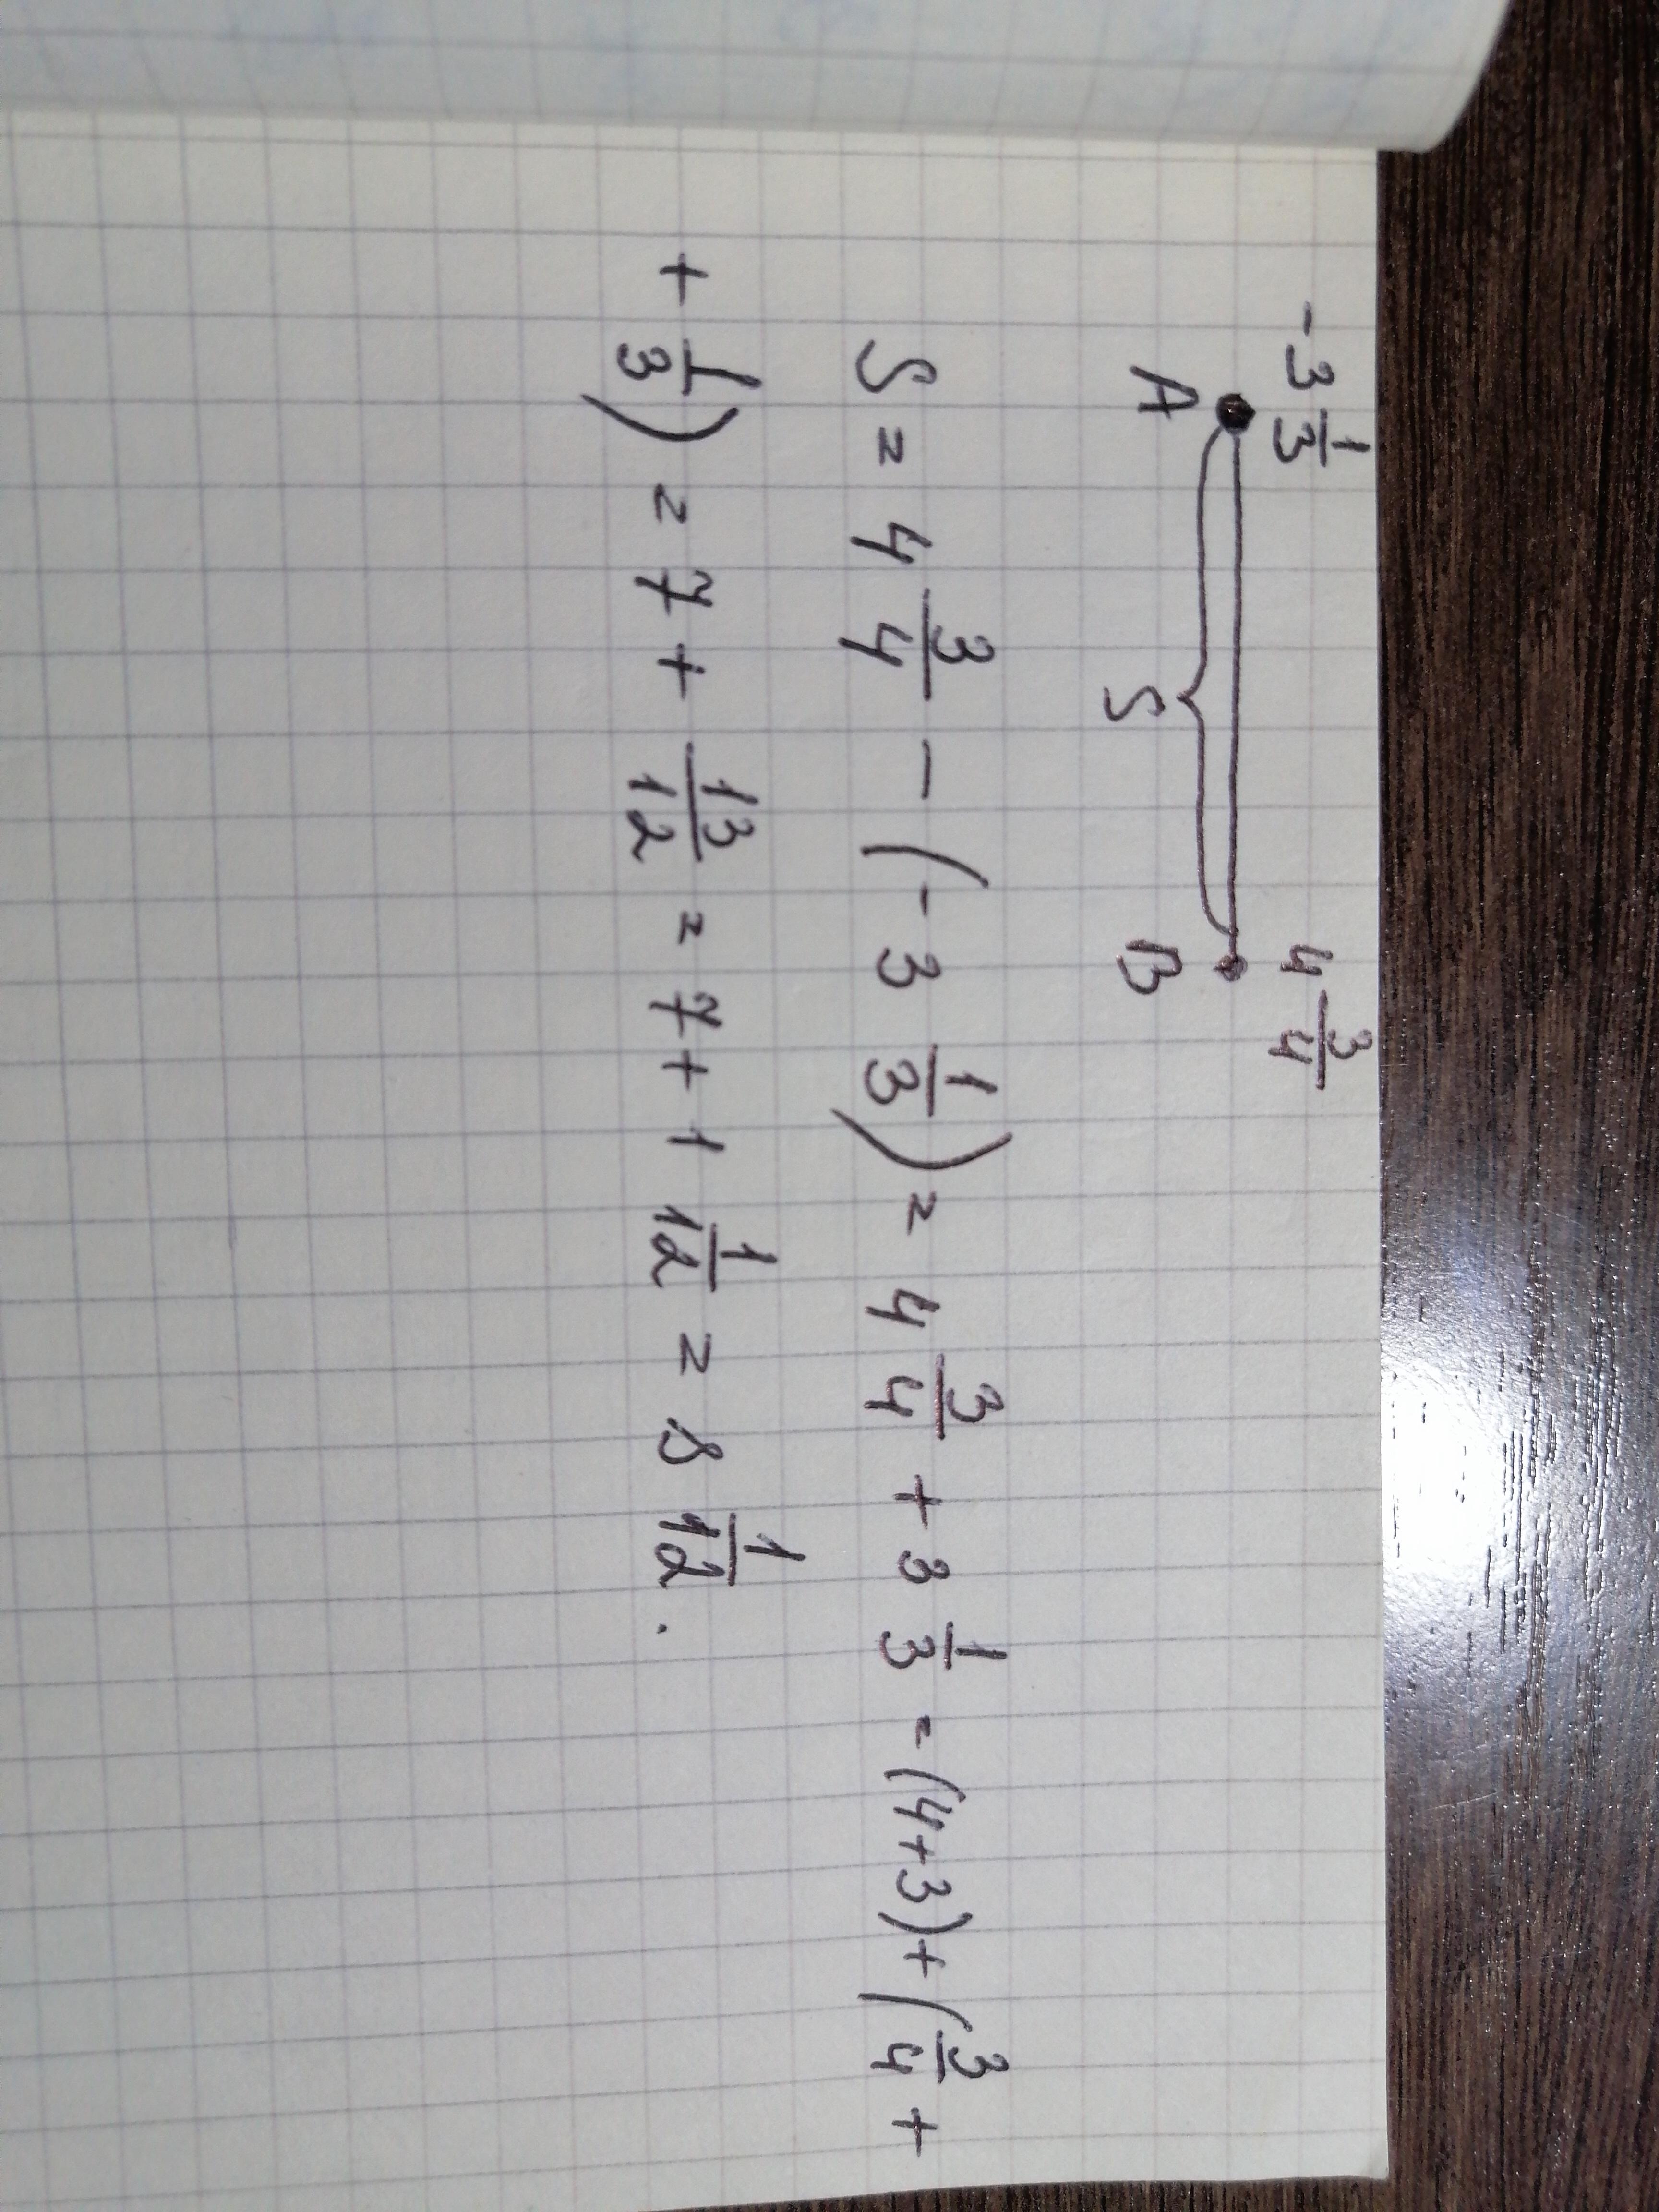 -3 1/3 4 3/4
A B
S
S = 4 3/4 - (-3 1/3) = 4 3/4 + 3 1/3 = (4+3) + (3/4 +
+ 1/3) = 7 + 13/12 = 7 + 1 1/12 = 8 1/12.